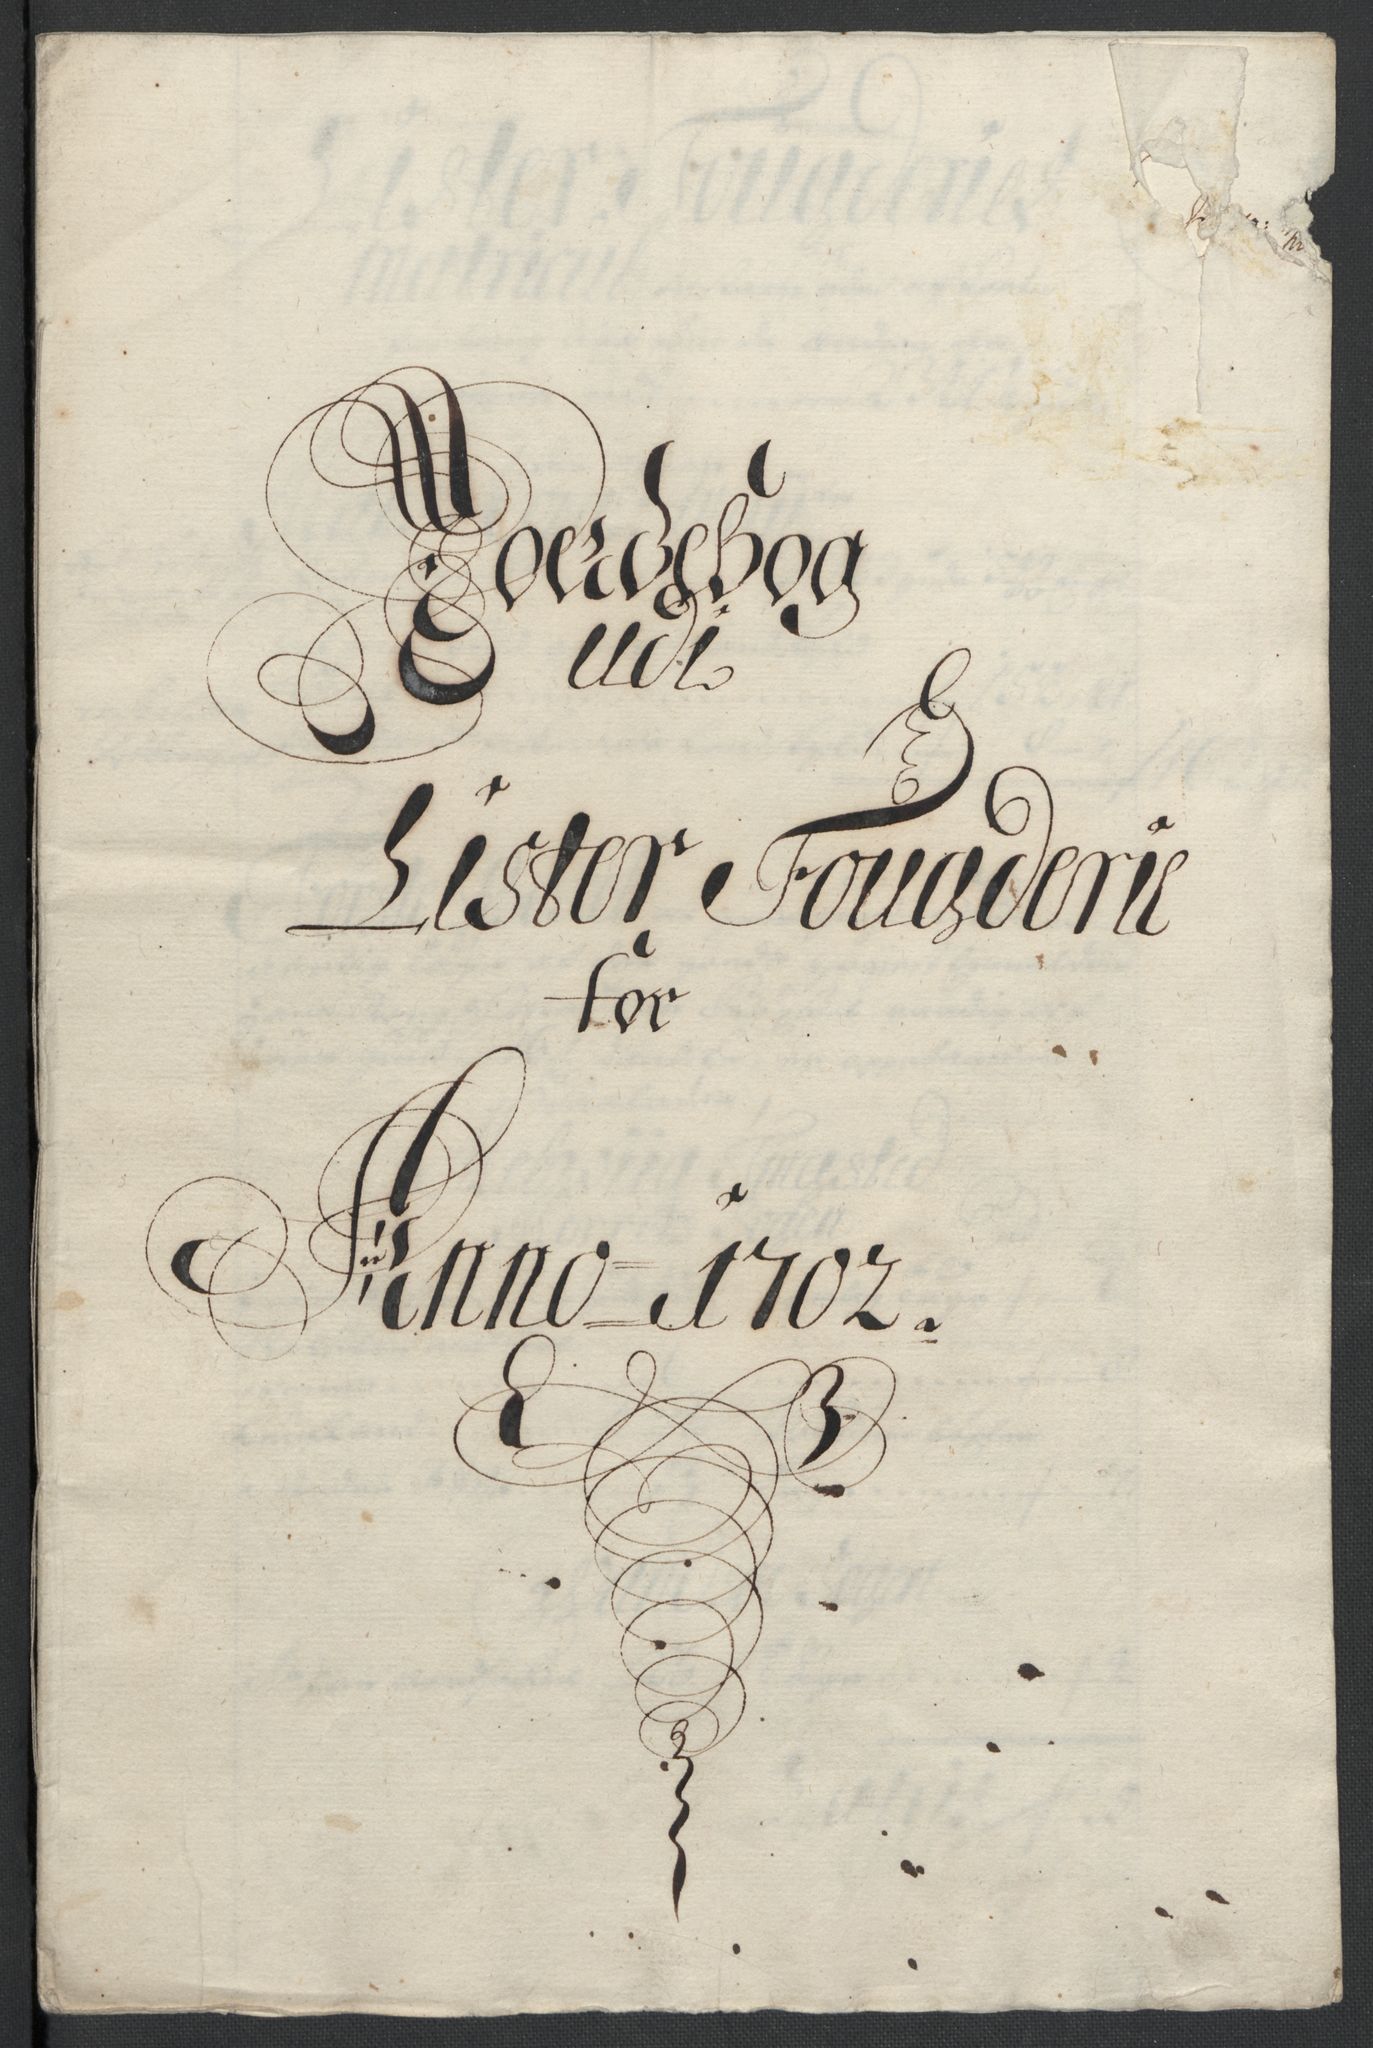 Joerdebog
udi
Lister Fougderie
for
Anno 1702.